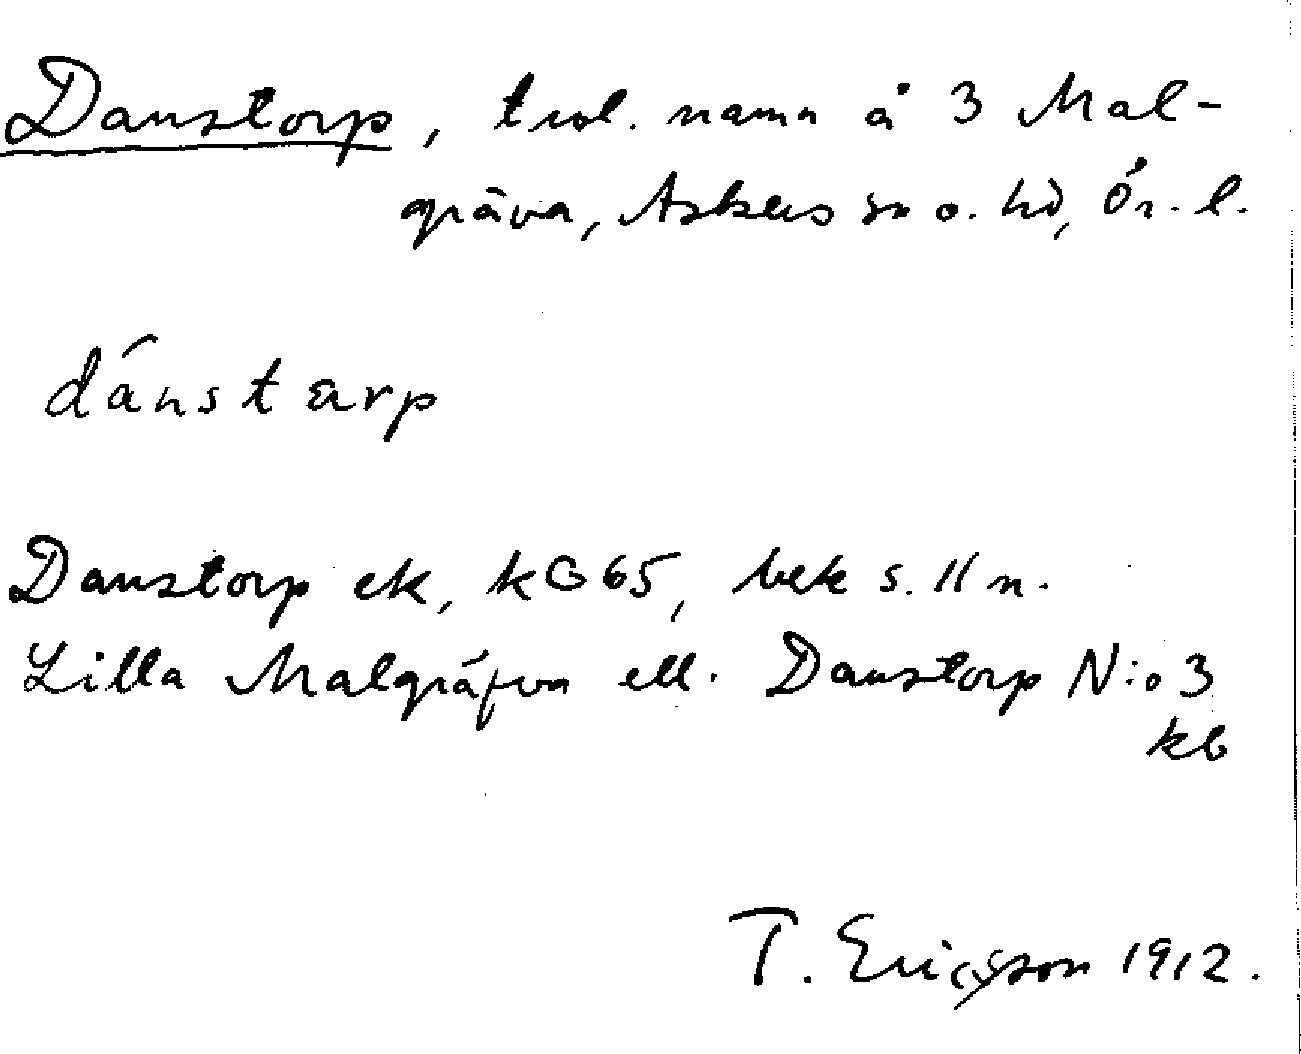 Danstorp, trol. namn å 3 Mal-
gräva, Askers sn o. hd, Ör. l.
dánstarp
Danstorp ek, kG65, bek s. 11 n.
Lilla Malgräfva ell. Danstorp N:o 3
kb
T. Ericsson 1912.